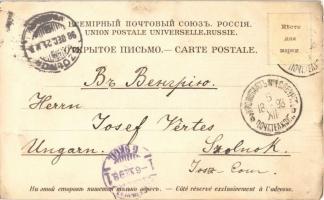 ВСЕМІРНЫЙ ПОЧТОВЫЙ СОЮЗЪ. РОССІЯ.
UNION POSTALE UNIVERSELLE. RUSSIE.
ОТКРЫТОЕ ПИСЬМО. — CARTE POSTALE.
Мѣсто
для
марки
Въ Венгрію.
Herrn
Josef Vértes
Ungarn.
Szolnok.
На этой сторонѣ пишется только адресъ. — Côté réservé exclusivement à l'adresse.